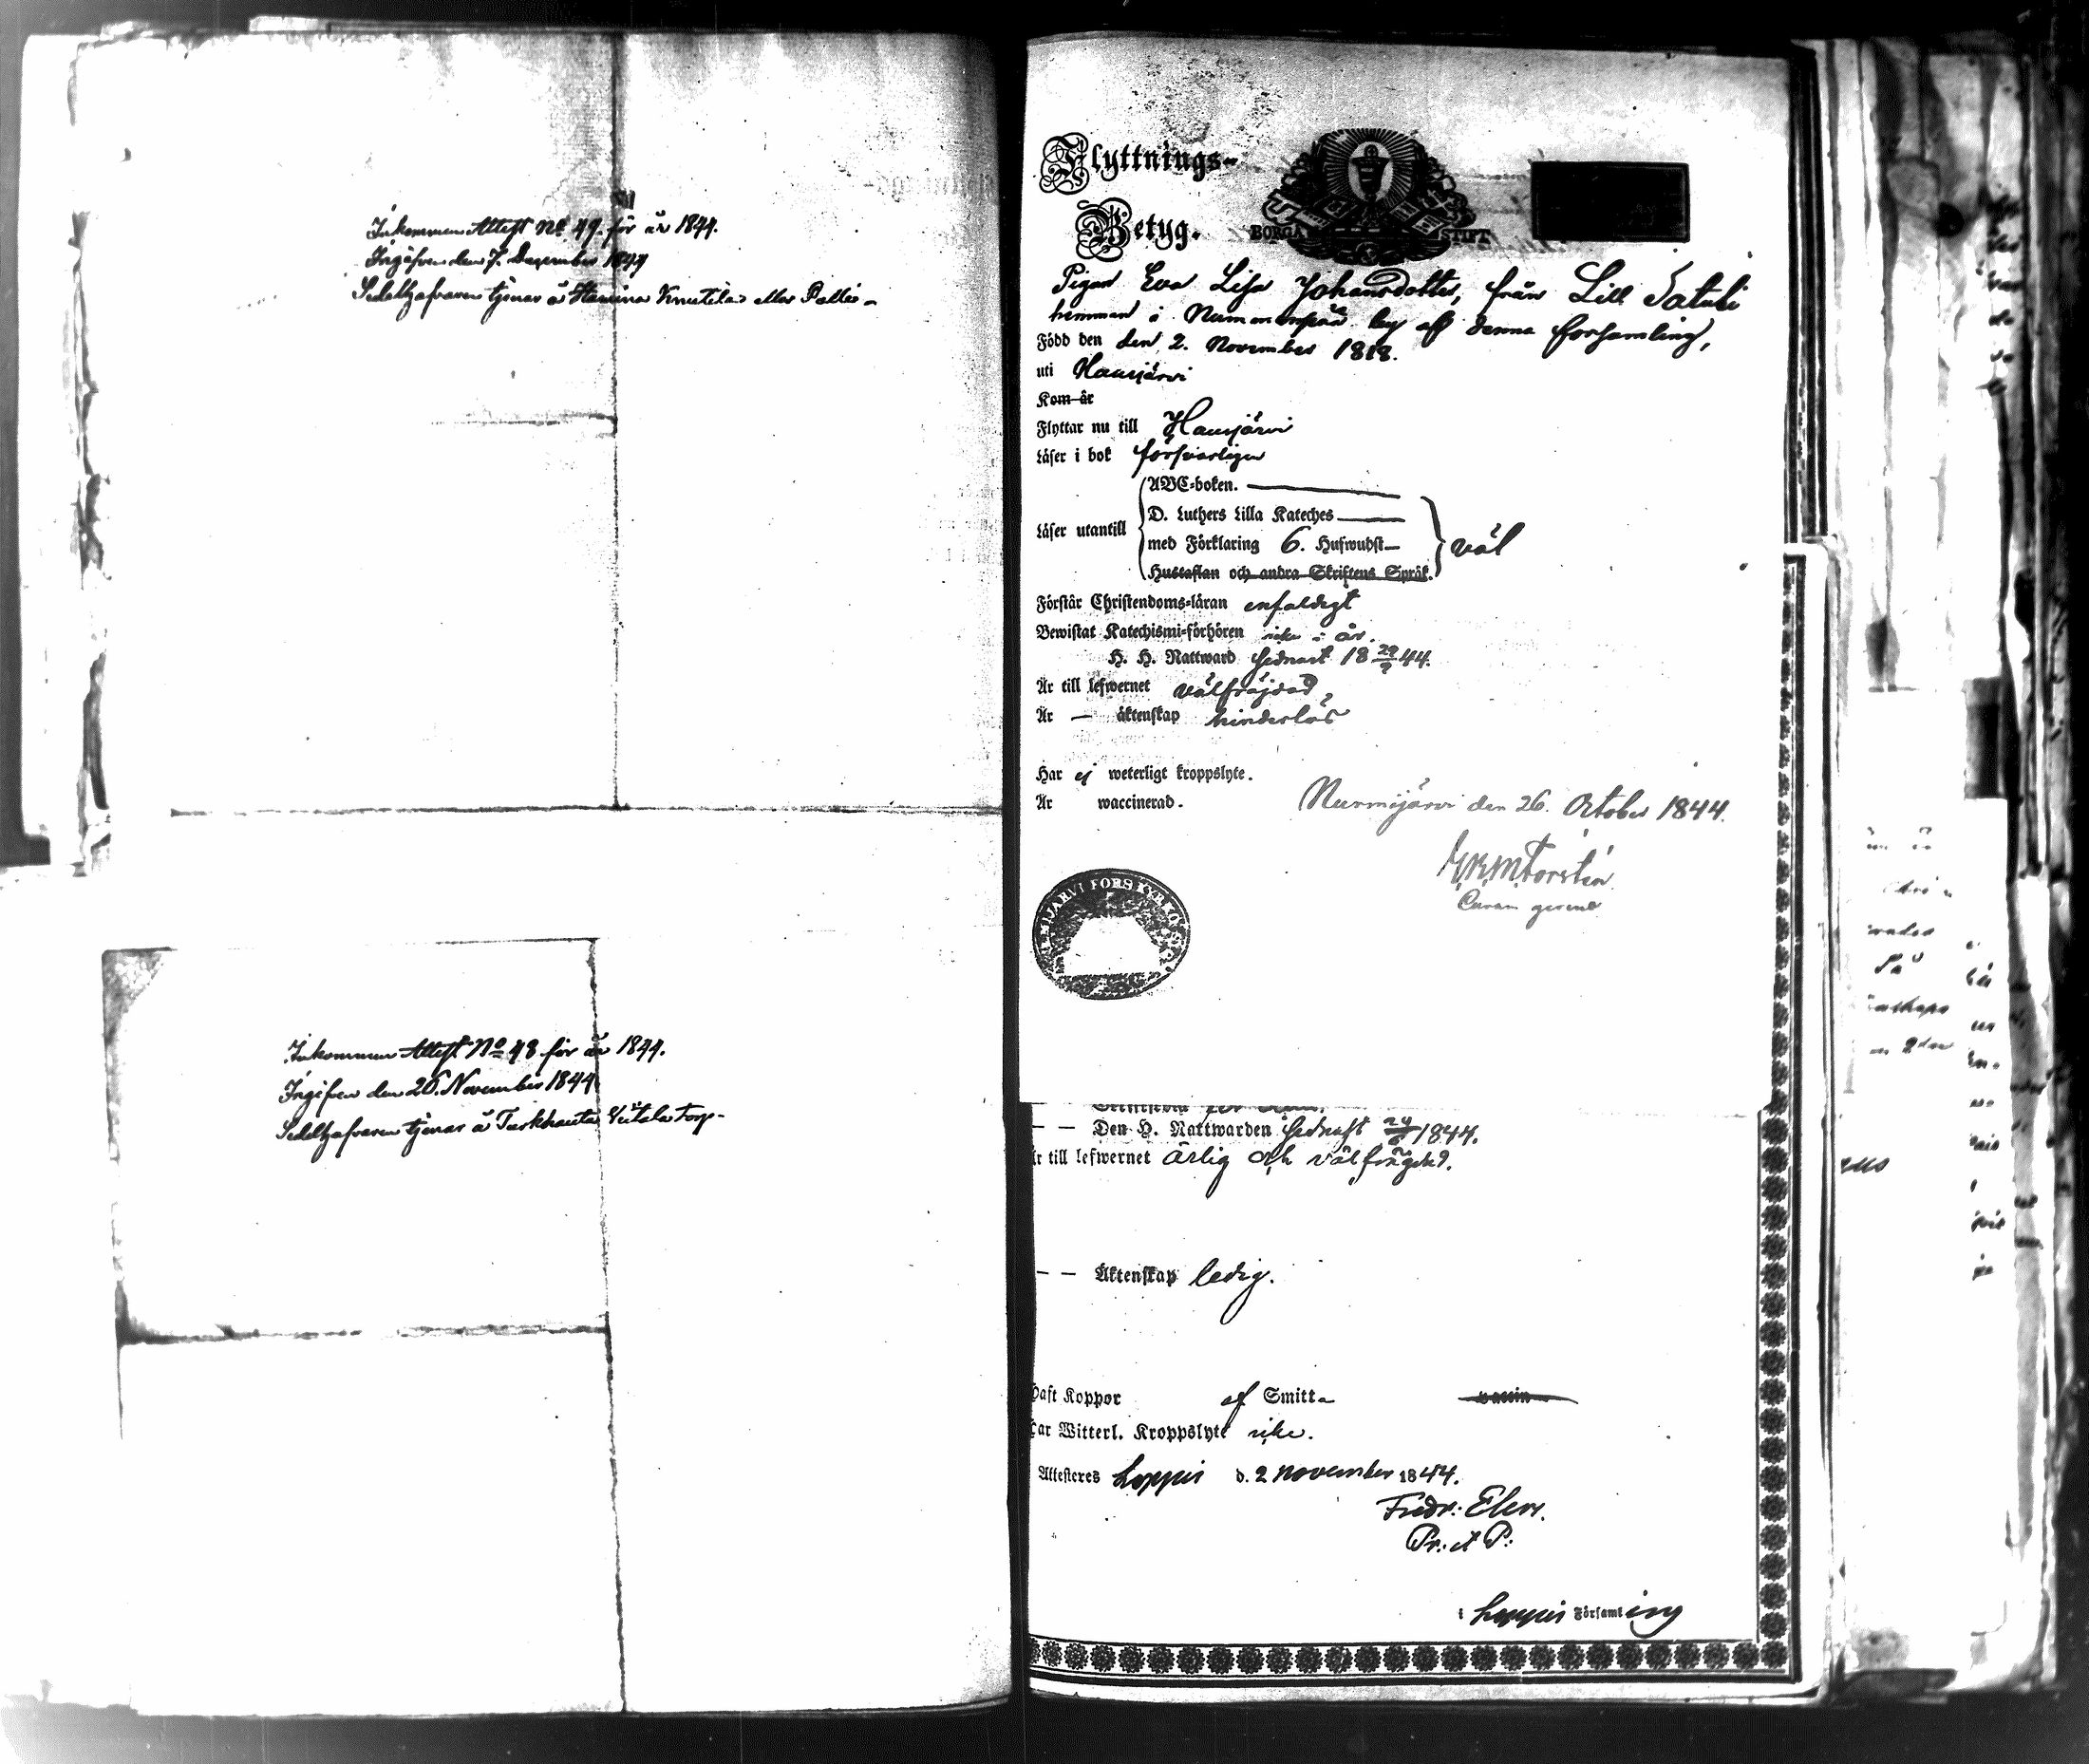 Inkommen Attest No 49. för år 1844.
Ingifven den 7. December 1844
Sedelhafvaren tjenar å Hamina Knutila eller Pallis-
Inkommen Attest No 48 för år 1844.
Ingifven den 26. November 1844
Sedelhafvaren tjenar å Turkhauta Torp-
Flyttnings-
Betyg.
BORGÅ STIFT
Pigan Eva Lisa Johansdotter, från Lill
hemman i by af denna församling,
Född den den 2. November 1818.
uti Hausjärvi
Kom år
Flyttar nu till Hausjärvi
Läser i bok försvarligen
ABC-boken.
D. Luthers Lilla Kateches
Läser utantill
med Förklaring 6. Hufwudst
väl
Hustaflan och andra Skriftens Språk.
Förstår Christendoms-läran enfaldigt
Bewistat Katechismi-förhören icke i år.
H. H. Nattward sednast 18 29/9 44.
Är till lefwernet välfräjdad
Är — äktenskap hinderlös
Har ej weterligt kroppslyte.
Är waccinerad.
Nurmijärvi den 26. October 1844.
Curam gerens
JÄRVI FORS KYRKO
— — Den H. Nattwarden sednast 1844.
r till lefwernet ärlig och välfrägdad.
— — Äktenskap ledig.
haft Koppor af Smitta
har Witterl. Kroppslyte icke.
Attesteres Loppis d. 2 November 1844.
Fredr:
Pr: et P:
i Loppis Församling